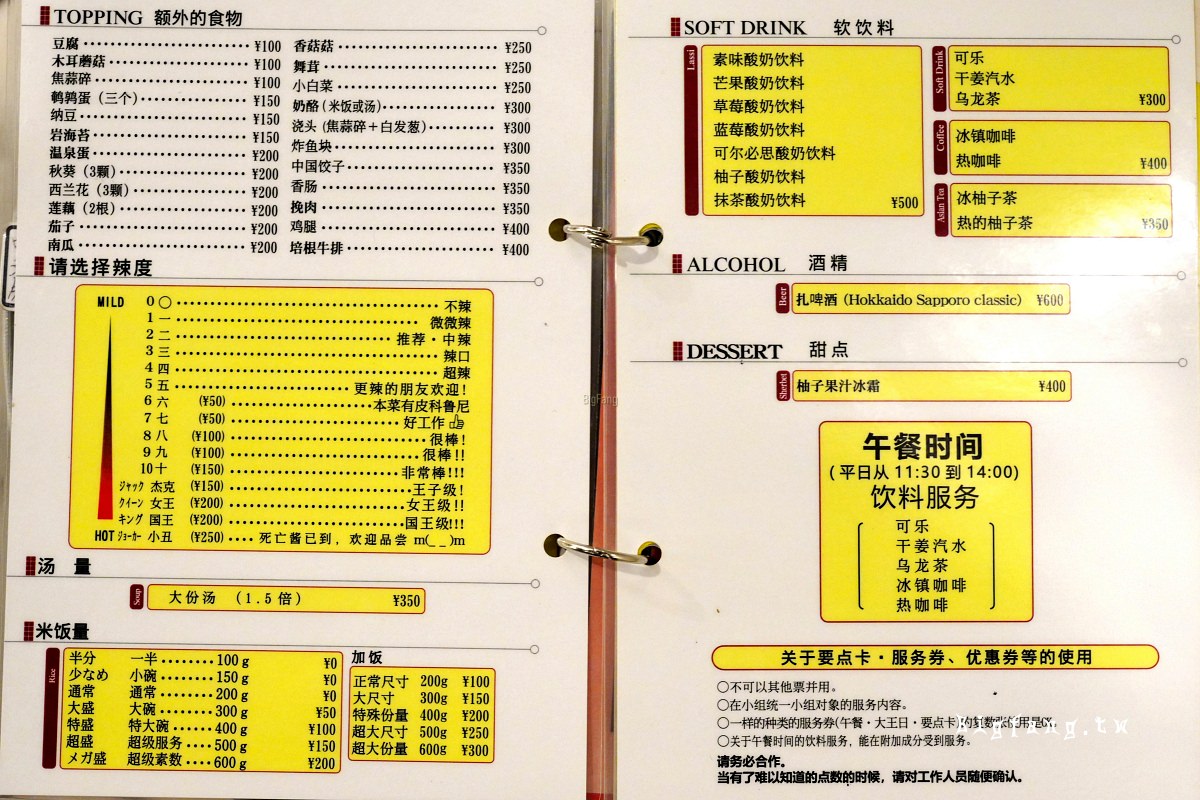 TOPPING 额外的食物
豆腐 ¥100
木耳蘑菇 ¥100
焦蒜碎 ¥100
鹌鹑蛋（三个） ¥150
纳豆 ¥150
岩海苔 ¥150
温泉蛋 ¥200
秋葵（3颗） ¥200
西兰花（3颗） ¥200
莲藕（2根） ¥200
茄子 ¥200
南瓜 ¥200
香菇菇 ¥250
舞茸 ¥250
小白菜 ¥250
奶酪（米饭或汤） ¥300
浇头（焦蒜碎＋白发葱） ¥300
炸鱼块 ¥300
中国饺子 ¥350
香肠 ¥350
挽肉 ¥350
鸡腿 ¥400
培根牛排 ¥400
请选择辣度
MILD 0 〇 不辣
1 一 微微辣
2 二 推荐・中辣
3 三 辣口
4 四 超辣
5 五 更辣的朋友欢迎！
6 六 (¥50) 本菜有皮科鲁尼
7 七 (¥50) 好工作
8 八 (¥100) 很棒！
9 九 (¥100) 很棒！！
10 十 (¥150) 非常棒!!!
ジャック 杰克 (¥150) 王子级！
クイーン 女王 (¥200) 女王级！！
キング 国王 (¥200) 国王级!!!
HOT ジョーカー 小丑 (¥250) 死亡酱已到，欢迎品尝 m(_ _)m
汤 量
Soup
大份汤 （1.5倍） ¥350
米饭量
Rice
半分 一半 100g ¥0
少なめ 小碗 150g ¥0
通常 通常 200g ¥0
大盛 大碗 300g ¥50
特盛 特大碗 400g ¥100
超盛 超级服务 500g ¥150
メガ盛 超级素数 600g ¥200
加饭
正常尺寸 200g ¥100
大尺寸 300g ¥150
特殊份量 400g ¥200
超大尺寸 500g ¥250
超大份量 600g ¥300
SOFT DRINK 软饮料
Lassi
素味酸奶饮料
芒果酸奶饮料
草莓酸奶饮料
蓝莓酸奶饮料
可尔必思酸奶饮料
柚子酸奶饮料
抹茶酸奶饮料 ¥500
Soft Drink
可乐
干姜汽水
乌龙茶 ¥300
Coffee
冰镇咖啡
热咖啡 ¥400
Asian Tea
冰柚子茶
热的柚子茶 ¥350
ALCOHOL 酒精
Beer
扎啤酒 (Hokkaido Sapporo classic) ¥600
DESSERT 甜点
Sherbet
柚子果汁冰霜 ¥400
午餐时间
(平日从 11:30 到 14:00)
饮料服务
可乐
干姜汽水
乌龙茶
冰镇咖啡
热咖啡
关于要点卡・服务券、优惠券等的使用
〇不可以其他票并用。
〇在小组统一小组对象的服务内容。
〇一样的种类的服务券(午餐・大王日・要点卡)的复数张的用是OK。
〇关于午餐时间的饮料服务，能在附加成分受到服务。
请务必合作。
当有了难以知道的点数的时候，请对工作人员随便确认。
BigFang
Bigfang.tw